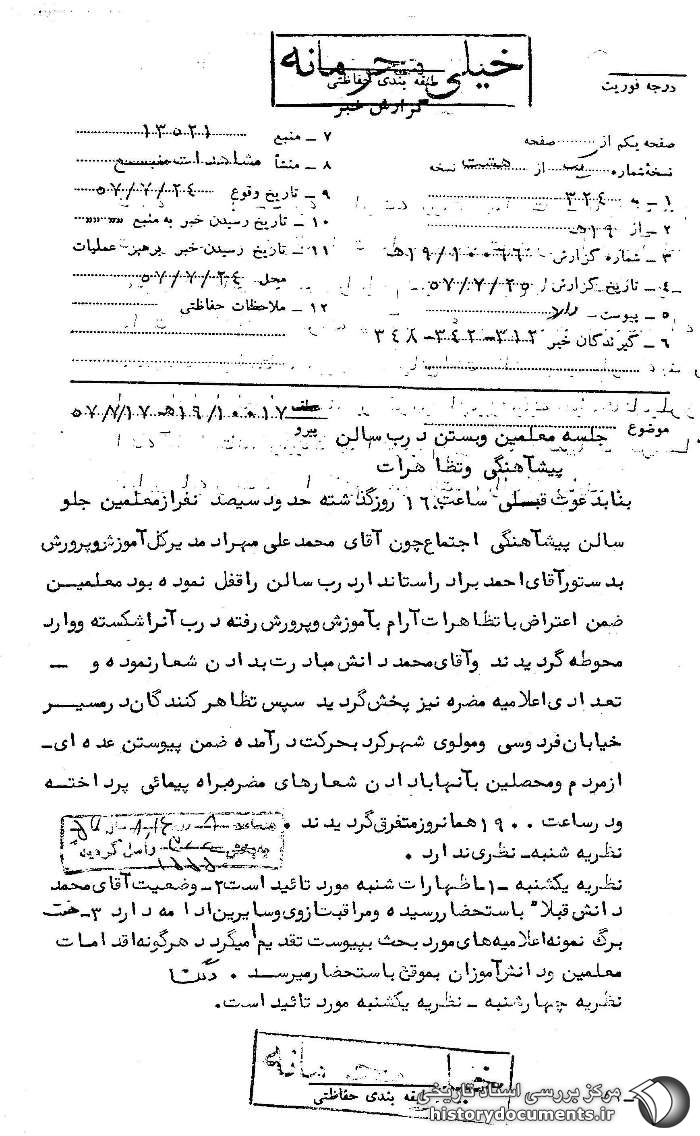 خیلی محرمانه
طبقه بندی حفاظتی
گزارش خبر
درجه فوریت
صفحه یکم از صفحه
نسخه شماره یک از هشت نسخه
۱ – به ۳۲۴
۲ – از ۱۹ﻫ
۳ – شماره گزارش ۱۹/۱۰۰۶۶ﻫ
۴ – تاریخ گزارش ۵۷/۷/۲۵
۵ – پیوست – دارد
۶ – گیرندگان خبر ۳۱۲–۳۴۲–۳۴۸
۷ – منبع ۱۳۵۲۱
۸ – منشأ مشاهدات منبع
۹ – تاریخ وقوع ۵۷/۷/۲۴
۱۰ – تاریخ رسیدن خبر به منبع
۱۱ – تاریخ رسیدن خبر برهبر عملیات
محل ۵۷/۷/۲۴
۱۲ – ملاحظات حفاظتی
موضوع جلسه معلمین وبستن درب سالن
پیشآهنگی وتظاهرات
پیرو ۱۹/۱۰۰۱۷ﻫ – ۵۷/۷/۱۷
بنابدعوت قبلی ساعت ۱۶ روزگذشته حدود سیصد نفراز معلمین جلو
سالن پیشآهنگی اجتماع چون آقای محمدعلی مهراد مدیرکل آموزش وپرورش
بدستورآقای احمد براد راستاندارد رب سالن راقفل نموده بود معلمین
ضمن اعتراض باتظاهرات آرام بآموزش وپرورش رفته درب آنراشکسته ووارد
محوطه گردیدند وآقای محمد دانش مبادرت بدادن شعارنموده و –
تعدادی اعلامیه مضره نیز پخش گردید سپس تظاهرکنندگان درمسیر
خیابان فردوسی ومولوی شهرکرد بحرکت درآمده ضمن پیوستن عده ای–
ازمردم ومحصلین بآنهابادادن شعارهای مضره براه پیمائی پرداخته
ودرساعت ۱۹۰۰ همانروز متفرق گردیدند .
نظریه شنبه– نظری ندارد .
نظریه یکشنبه –۱–اظهارات شنبه مورد تائید است ۲–وضعیت آقای محمد
دانش قبلاً باستحضاررسیده ومراقبت ازوی وسایرین ادامه دارد ۳–
برگ نمونه اعلامیه های مورد بحث بپیوست تقدیم میگردد هرگونه اقدامات
معلمین ودانش آموزان بموقع باستحضارمیرسد .
نظریه چهارشنبه – نظریه یکشنبه مورد تائید است.
خیلی محرمانه
طبقه بندی حفاظتی
مرکز بررسی اسناد تاریخی
historydocuments.ir